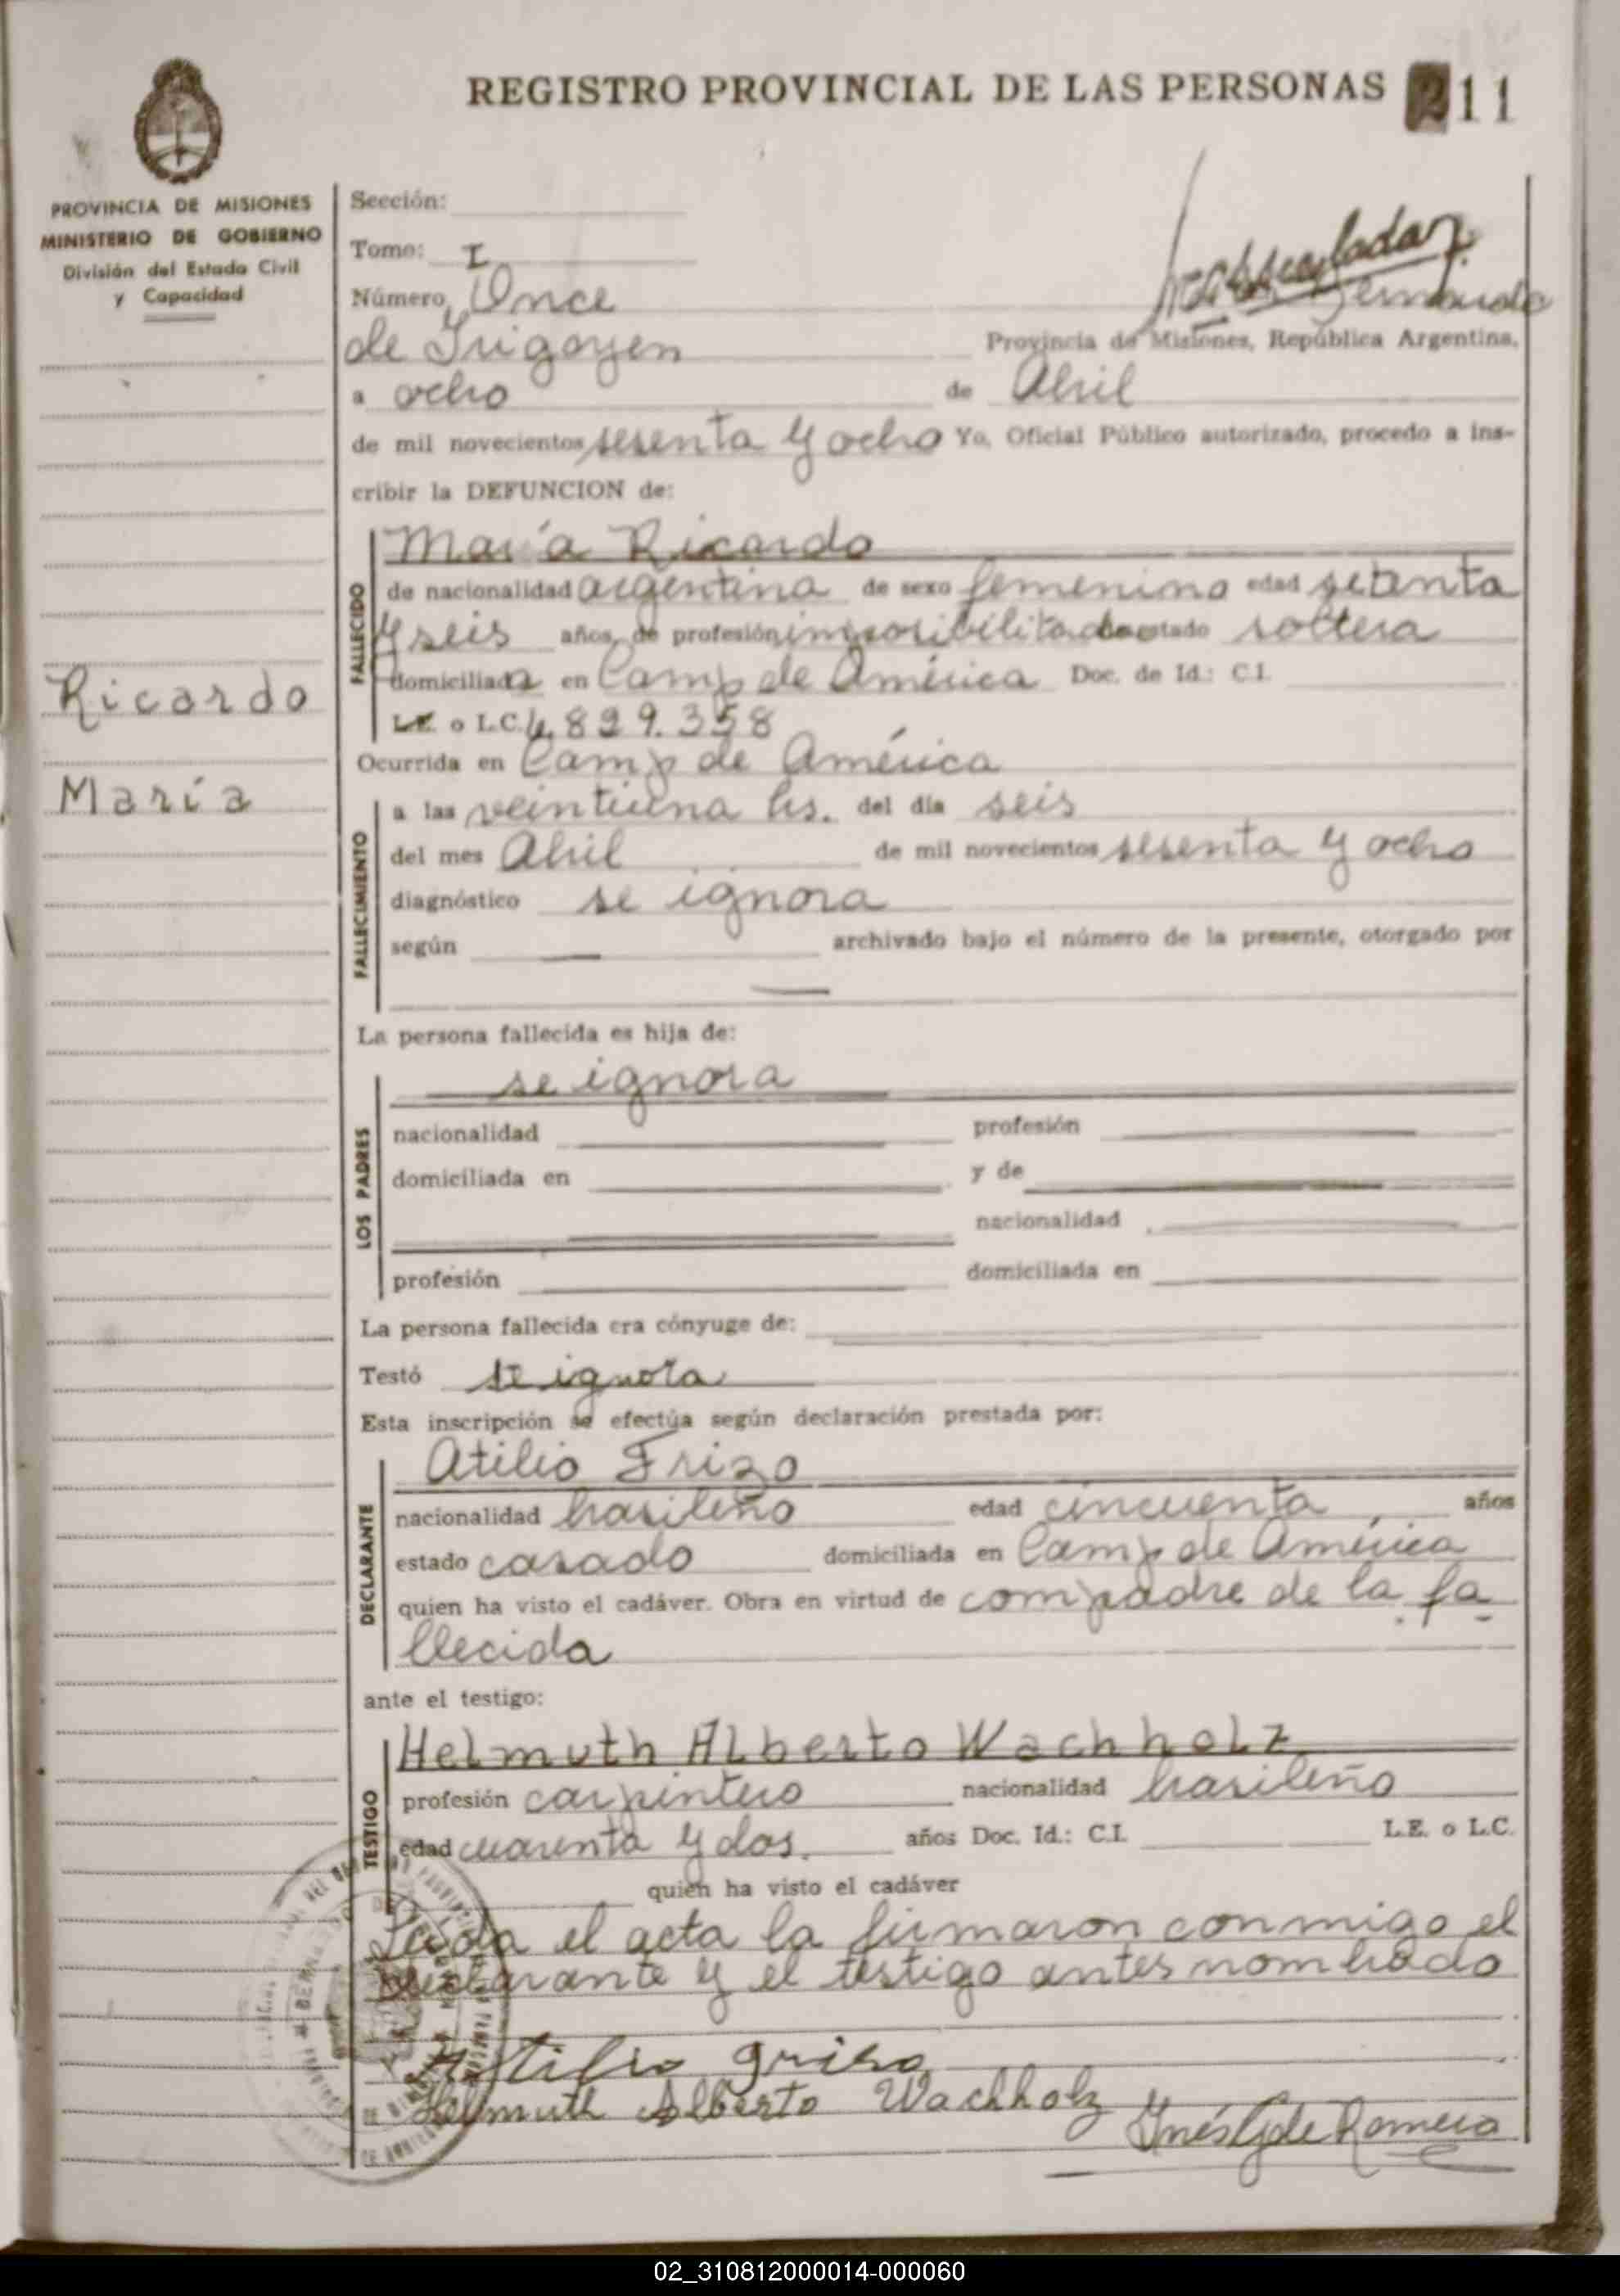 REGISTRO PROVINCIAL DE LAS PERSONAS 211
PROVINCIA DE MISIONES
MINISTERIO DE GOBIERNO
División del Estado Civil
y Capacidad
Sección:
Tomo: I
Número, Once Bernardo
de Irigoyen Provincia de Misiones, República Argentina,
a ocho de Abril
de mil novecientos sesenta y ocho Yo, Oficial Público autorizado, procedo a ins-
cribir la DEFUNCION de:
FALLECIDO
María Ricardo
de nacionalidad argentina de sexo femenino edad setenta
y seis años, de profesión imposibilitada estado soltera
domiciliada en Camp de América Doc. de Id.: C.I.
L.E. o L.C. 4.829.358
Ricardo
María
Ocurrida en Camp de América
FALLECIMIENTO
a las veintiuna hs. del día seis
del mes Abril de mil novecientos sesenta y ocho
diagnóstico se ignora
según — archivado bajo el número de la presente, otorgado por
—
La persona fallecida es hija de:
LOS PADRES
se ignora
nacionalidad profesión
domiciliada en y de
nacionalidad
profesión domiciliada en
La persona fallecida era cónyuge de:
Testó se ignora
Esta inscripción se efectúa según declaración prestada por:
DECLARANTE
Atilio Frizo
nacionalidad brasileño edad cincuenta años
estado casado domiciliada en Camp de América
quien ha visto el cadáver. Obra en virtud de compadre de la fa
llecida
ante el testigo:
TESTIGO
Helmuth Alberto Wachholz
profesión carpintero nacionalidad brasileño
edad cuarenta y dos. años Doc. Id.: C.I. L.E. o L.C.
quien ha visto el cadáver
Leída el acta la firmaron conmigo el
declarante y el testigo antes nombrado
Atilio Griso
Helmuth Alberto Wachholz
Inés G de Romero
02_310812000014-000060